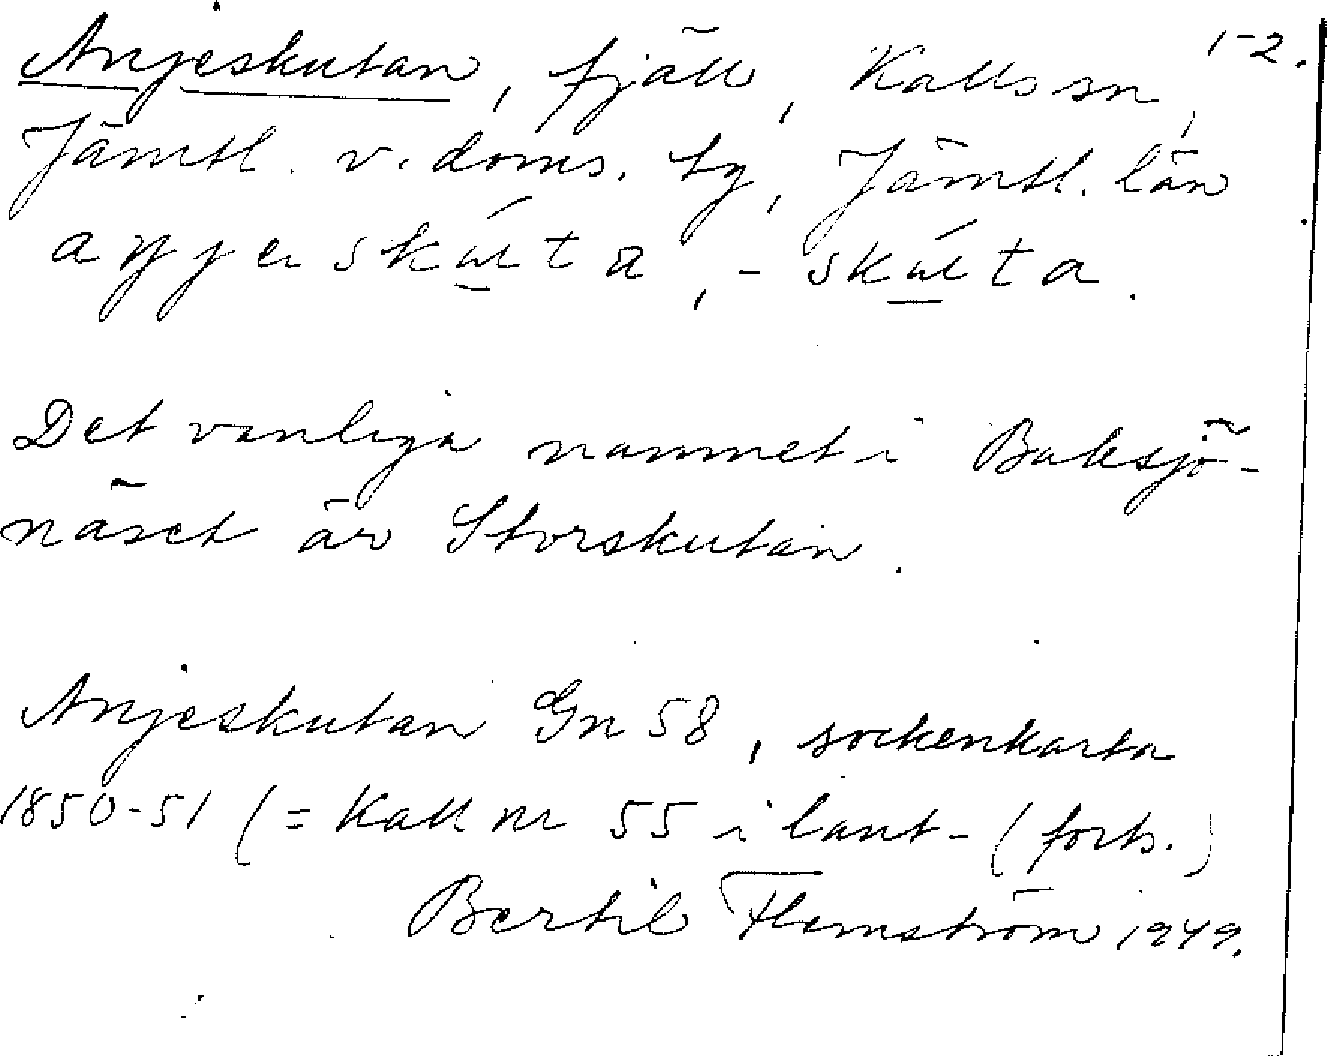 Anjeskutan, fjäll, Kalls sn, 1-2.
Jämtl. v. doms. tg, Jämtl. län
Det vanliga namnet i Baksjö-
näset är Storskutan.
Anjeskutan Gn 58, sockenkarta
1850-51 (= Kall nr 55 i lant- (forts.)
Bertil Flemström 1949.